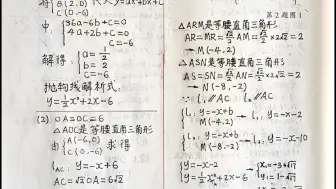 将 B(2,0) 代入 y=ax²+bx+c
C(0,-6)
中: { 36a-6b+c=0
4a+2b+c=0
c=-6
解得: { a=1/2
b=2
c=-6
抛物线解析式:
y=1/2x²+2x-6
(2) OA=OC=6
△AOC是等腰直角三角形
由 { A(-6,0)
C(0,-6) 求得
l_AC: y=-x+6
AC=√2OA=6√2
第2题图1
△ARM是等腰直角三角形
AR=MR=√2/2AM=√2/2×2√2=2
→M(-4,2)
△ASN是等腰直角三角形
AS=SN=√2/2AN=√2/2×2√2=2
→N(-8,-2)
∵ l₁∥AC l₂∥AC
{ l₁: y=-x+ → l₁: y=-x-2
M(-4,2)
{ l₂: y=-x+ → l₂: y=-x-10
N(-8,-2)
{ y=-x-2
y=1/2x²+2x-6 → { x₁=-3+√17